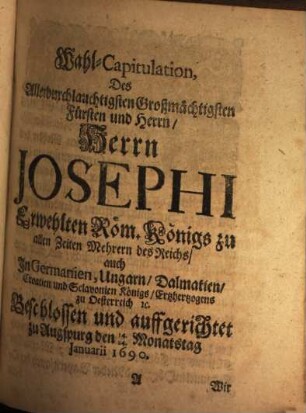 Wahl-Capitulation,
Des
Allerdurchlauchtigsten Großmächtigsten
Fürsten und Herrn/
Herrn
JOSEPHI
Erwehlten Röm. Königs zu
allen Zeiten Mehrern des Reichs/
auch
In Germanien, Ungarn/ Dalmatien/
Croatien und Sclavonien Königs/ Ertzhertzogens
zu Oesterreich ꝛc.
Beschlossen und auffgerichtet
zu Augspurg den Monatstag
Januarii 1690.
A
Wir